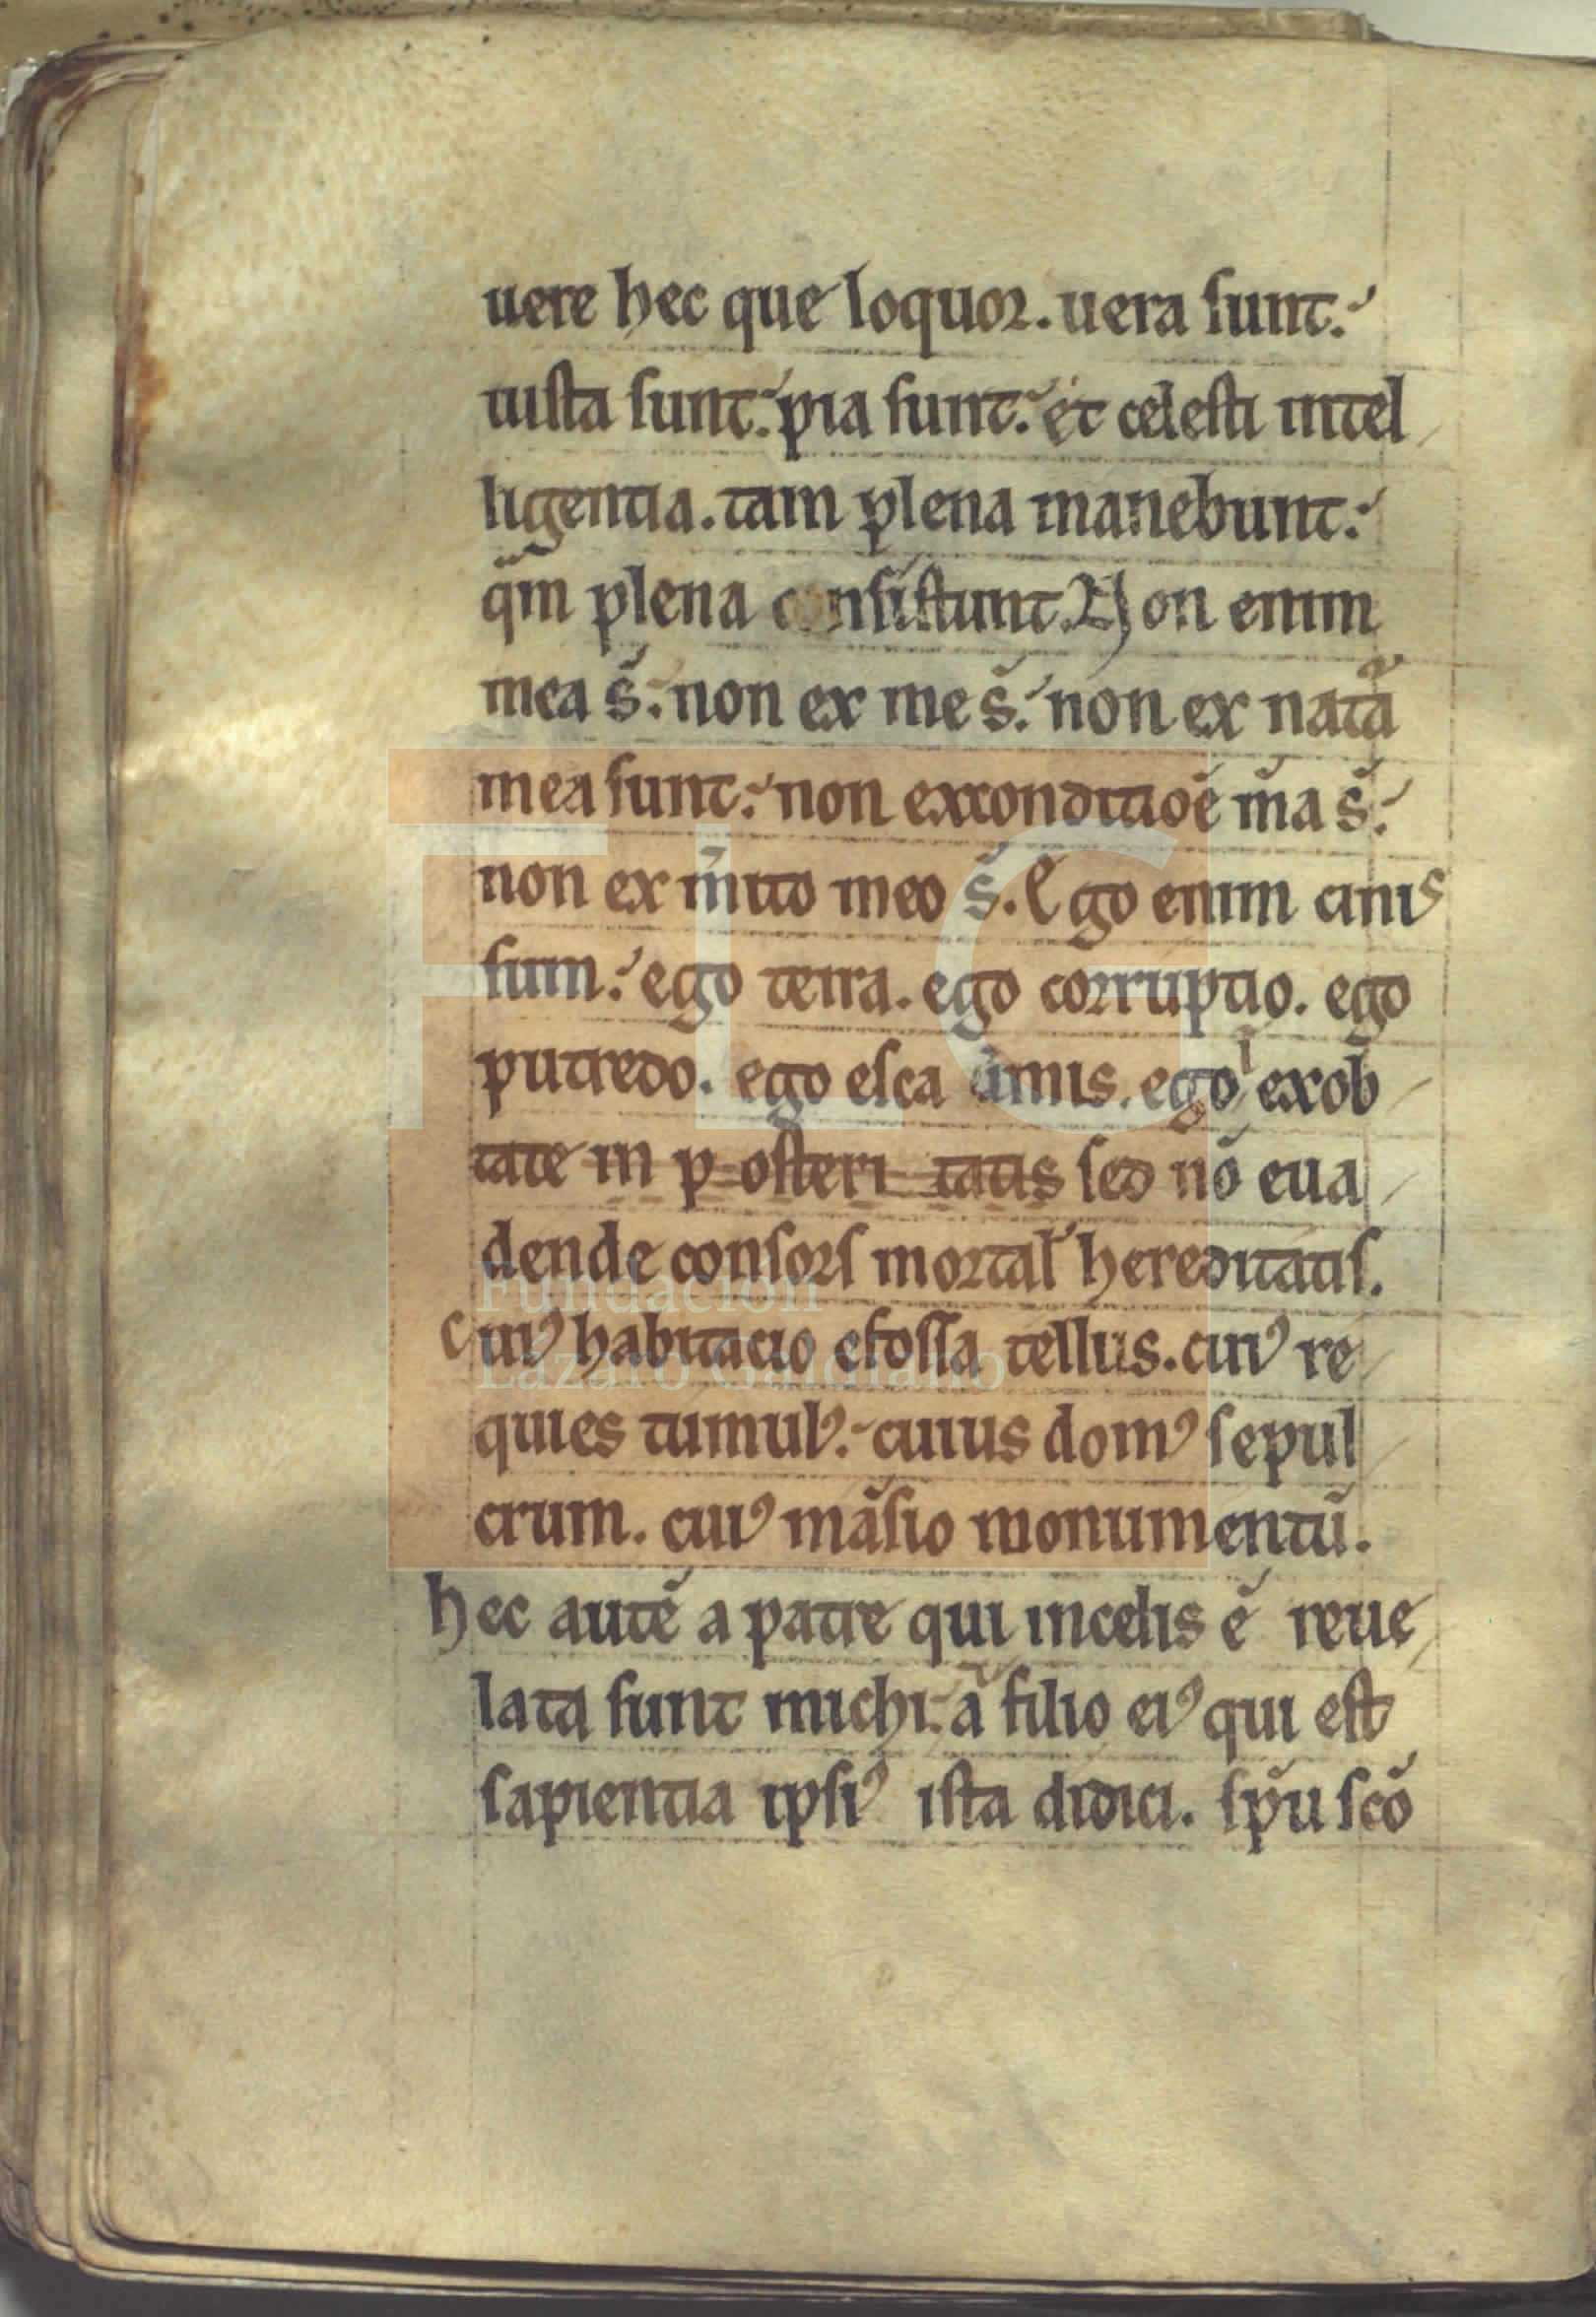 uere hec que loquor. uera sunt.
iusta sunt. pia sunt. et celesti intel
ligentia. tam plena manebunt.
qm̄ plena consistunt. Non enim
mea s̄. non ex me s̄. non ex natā
mea sunt. non exconditioē m̄a s̄.
non ex m̄ito meo s̄. Ego enim cinis
sum. ego terra. ego corruptio. ego
putredo. ego esca ego exob
tate in posteri tatis sed nō eua
dende consors mortal' hereditatis.
cuiꝰ habitacio efossa tellus. cuiꝰ re
quies tumulꝰ. cuius domꝰ sepul
crum. cuiꝰ māsio monumentū.
hec autē a patre qui incelis ē reue
lata sunt michi. a filio eiꝰ qui est
sapientia ipsiꝰ ista didici. sp̄u scō
FLG
Fundación
Lázaro Galdiano